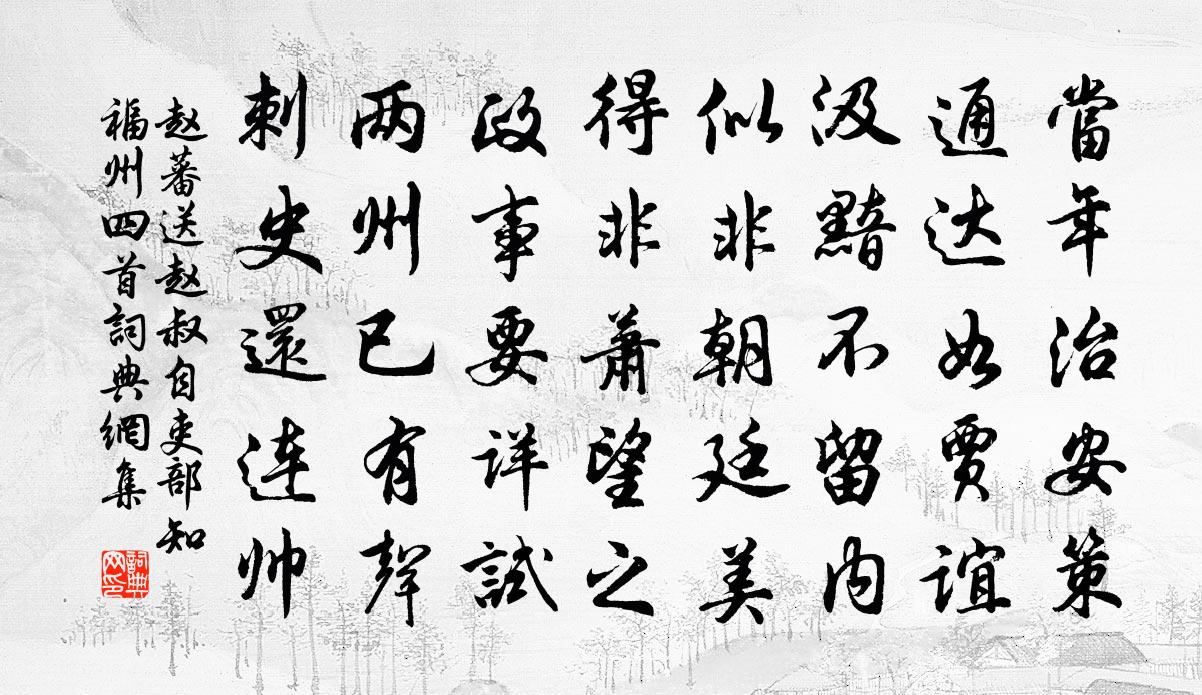 當年治安策
通达如贾誼
汲黯不留内
似非朝廷美
得非萧望之
政事要详試
两州已有聲
刺史還连帅
赵蕃送赵叔自吏部知
福州四首詞典網集
詞典网印